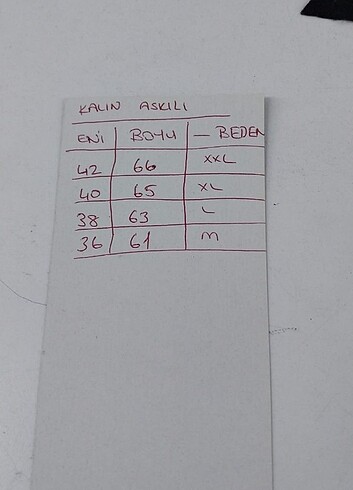 KALIN ASKILI
ENİ BOYU — BEDEN
42 66 XXL
40 65 XL
38 63 L
36 61 M